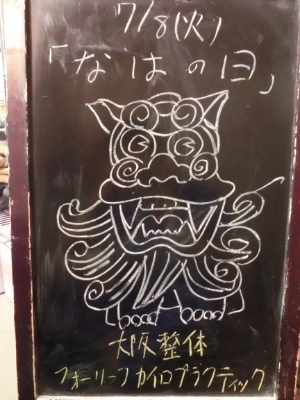 7/8(火)
「なはの日」
大阪整体
フォーリーフカイロプラクティック